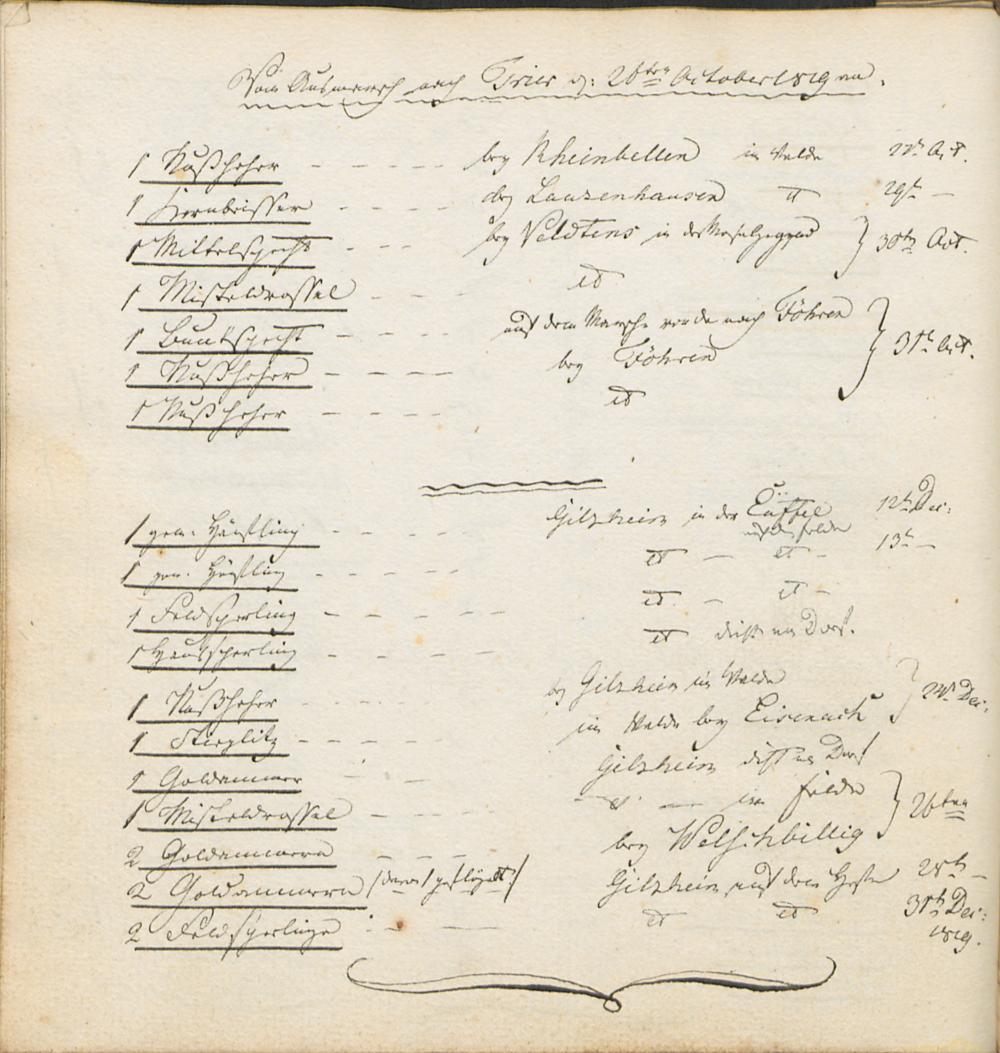 Vom Ausmarsch nach Trier d: 26ten October 1819 an.
1 Nußheher - - - - bey Rheinbellen im Walde 27t Oct.
1 Kernbeisser - - - - bey Lauzenhausen " 29t -
1 Mittelspecht - - - bey Veldtens in der Moselgegend 30t Oct.
1 Misteldrossel - - - -
1 Buntspecht - - - - auf dem Marsche von da nach Föhren 31t Oct.
1 Nußheher - - - - bey Föhren
1 Nußheher - - - -
1 gem. Hänfling - - - - Gilzheim in der Eüffel 12t Dec:
auf dem Felde
1 gem. Hänfling - - - - 13t -
1 Feldsperling - - - - -
1 Haussperling - - - - - dicht am Dorf.
1 Nußheher - - - - bey Gilzheim im Walde Dec:
1 Stieglitz - - - - - im Walde bey Eisenach
1 Goldammer Gilzheim dicht am Dorf
1 Misteldrossel - - - - im Felde 26ten
2 Goldammern - - - bey Welschbillig
2 Goldammern Gilzheim, auf dem 28t -
2 Feldsperlinge - - - 31t Dec:
1819.